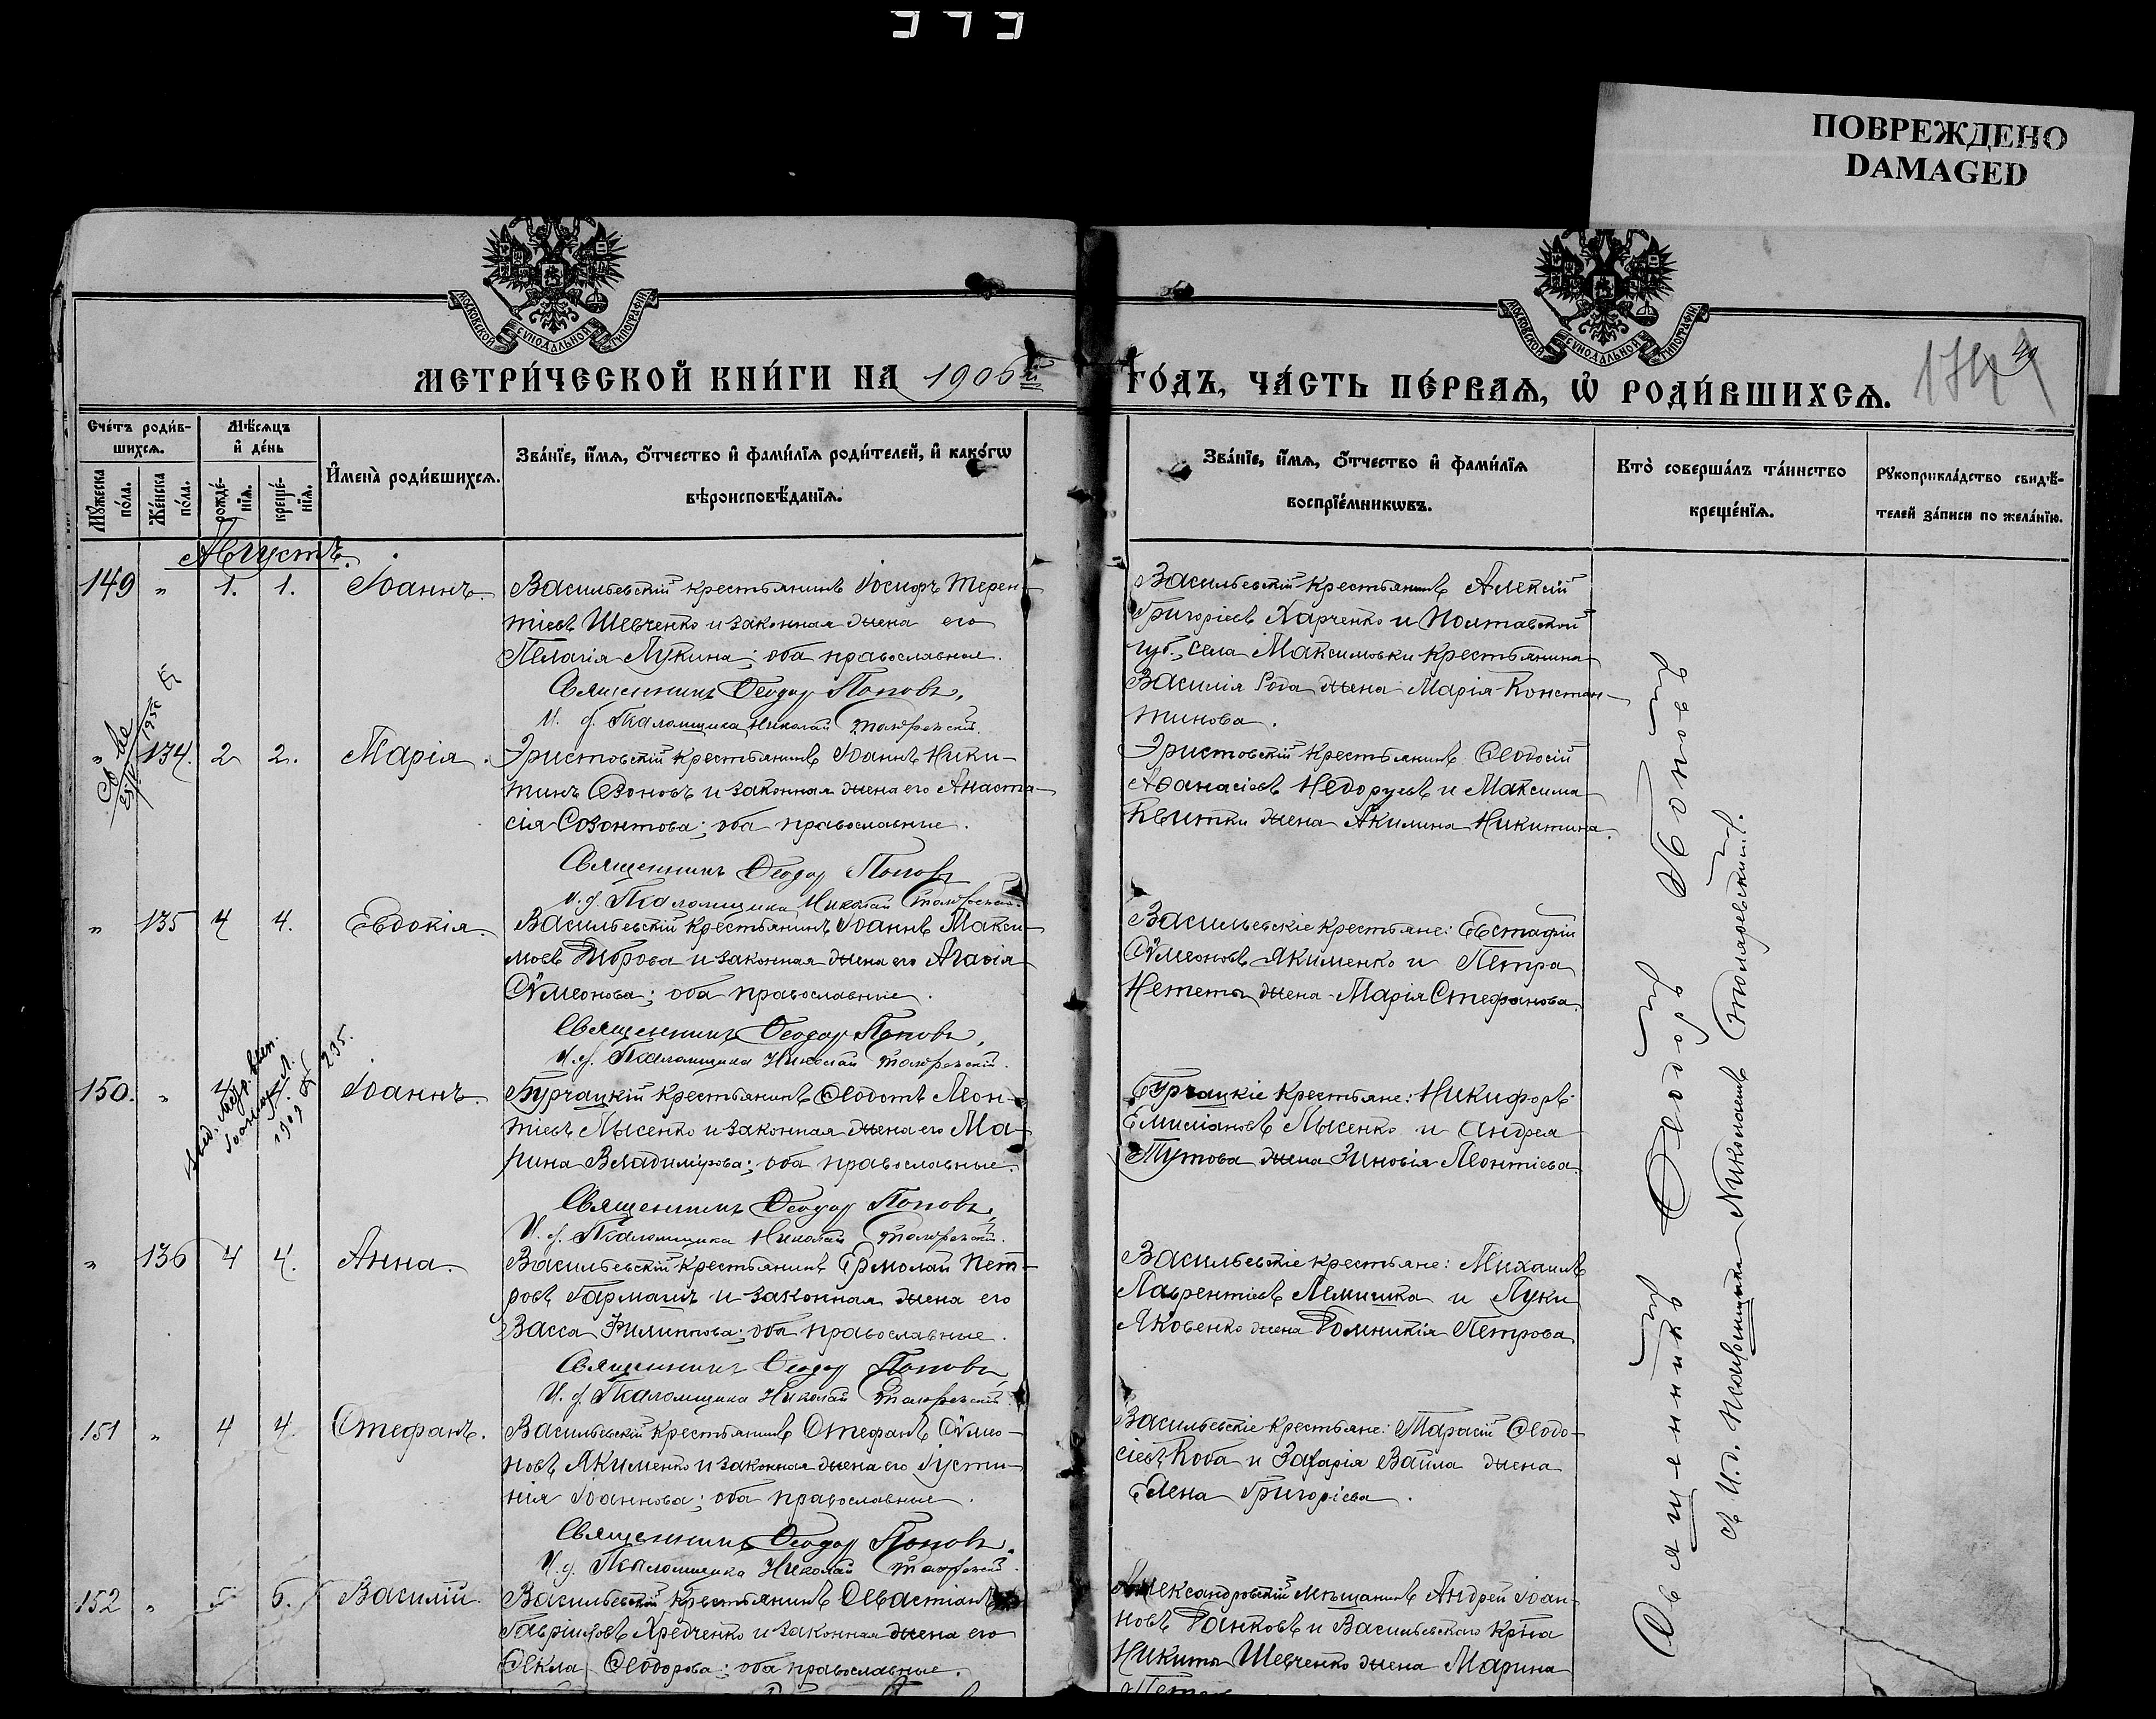 ПОВРЕЖДЕНО
DAMAGED
МОСКОВСКОЙ СѴНОДАЛЬНОЙ ТИПОГРАФІИ
МОСКОВСКОЙ СѴНОДАЛЬНОЙ ТИПОГРАФІИ
МЕТРИ́ЧЕСКОЙ КНИ́ГИ НА 1906й ГО́ДЪ, ЧА́СТЬ ПЕ́РВАЯ, Ѡ РОДИ́ВШИХСЯ.
Сче́тъ роди́в-
шихся.
Му́жеска по́ла.
Же́нска по́ла.
Мѣ́сяцъ
и де́нь
рожде́-
нїя.
креще́-
нїя.
Имена̀ роди́вшихся.
Зва́нїе, и́мя, о́тчество и фами́лїя роди́телей, и како́гѡ
вѣроисповѣ́данїя.
Зва́нїе, и́мя, о́тчество и фами́лїя
воспрїе́мникѡвъ.
Кто̀ соверша́лъ та́инство
креще́нїя.
Рукоприкла́дство свидѣ́-
телей за́писи по жела́нїю.
Августъ.
149 " 1. 1. Іоаннъ.
Васильевскій крестьянинъ Іосифъ Терен-
тіевъ Шевченко и законная жена его
Пелагія Лукина; оба православные.
Священникъ Ѳеодоръ Поповъ,
И. д. Псаломщика Николай Столяревскій.
Васильевскій крестьянинъ Алексій
Григоріевъ Харченко и Полтавской
губ., села Максимовки крестьянина
Василія Рода жена Марія Констан-
тинова.
" 134. 2 2. Марія.
Эристовскій крестьянинъ Іоаннъ Ники-
тинъ Созоновъ и законная жена его Анаста-
сія Созонтова; оба православные.
Священникъ Ѳеодоръ Поповъ
И. д. Псаломщика Николай Столяревскій.
Эристовскій крестьянинъ Ѳеодосій
Аѳанасіевъ Недорубъ и Максима
Квитки жена Акилина Никитина.
" 135 4 4. Евдокія.
Васильевскій крестьянинъ Іоаннъ Макси-
мовъ Диброва и законная жена его Агаѳія
Сѵмеонова; оба православные.
Священникъ Ѳеодоръ Поповъ,
И. д. Псаломщика Николай Столяревскій.
Васильевскіе крестьяне: Евстафій
Сѵмеоновъ Якименко и Петра
Нететы жена Марія Стефанова.
150. " Іоаннъ.
1909 235.
Бурчацкій крестьянинъ Ѳеодотъ Леон-
тіевъ Лысенко и законная жена его Ма-
рина Владимірова; оба православные.
Священникъ Ѳеодоръ Поповъ,
И. д. Псаломщика Николай Столяревскій.
Бурчацкіе крестьяне: Никифоръ
Емиліановъ Лысенко и Андрея
Тутова жена Зиновія Леонтіева.
" 136 4 4. Анна.
Васильевскій крестьянинъ Ермолай Пет-
ровъ Гармашъ и законная жена его
Васса Филиппова; оба православные.
Священникъ Ѳеодоръ Поповъ,
И. д. Псаломщика Николай Столяревскій.
Васильевскіе крестьяне: Михаилъ
Лаврентіевъ Лемишка и Луки
Яковенко жена Домникія Петрова.
151 " 4 4. Стефанъ.
Васильевскій крестьянинъ Стефанъ Сѵмео-
новъ Якименко и законная жена его Іусти-
нія Іоаннова; оба православные.
Священникъ Ѳеодоръ Поповъ.
И. д. Псаломщика Николай Столяревскій.
Васильевскіе крестьяне: Тарасій Ѳеодо-
сіевъ Коба и Захарія Вайла жена
Елена Григоріева.
152 " 5 6. Василій.
Васильевскій крестьянинъ Севастіанъ
Гавріиловъ Хредченко и законная жена его
Ѳекла Ѳеодорова; оба православные.
Александровскій мѣщанинъ Андрей Іоан-
новъ Данковъ и Васильевскаго кр-на
Никиты Шевченко жена Марина
Священникъ Ѳеодоръ Поповъ
съ И. д. псаломщика Николаемъ Столяревскимъ.